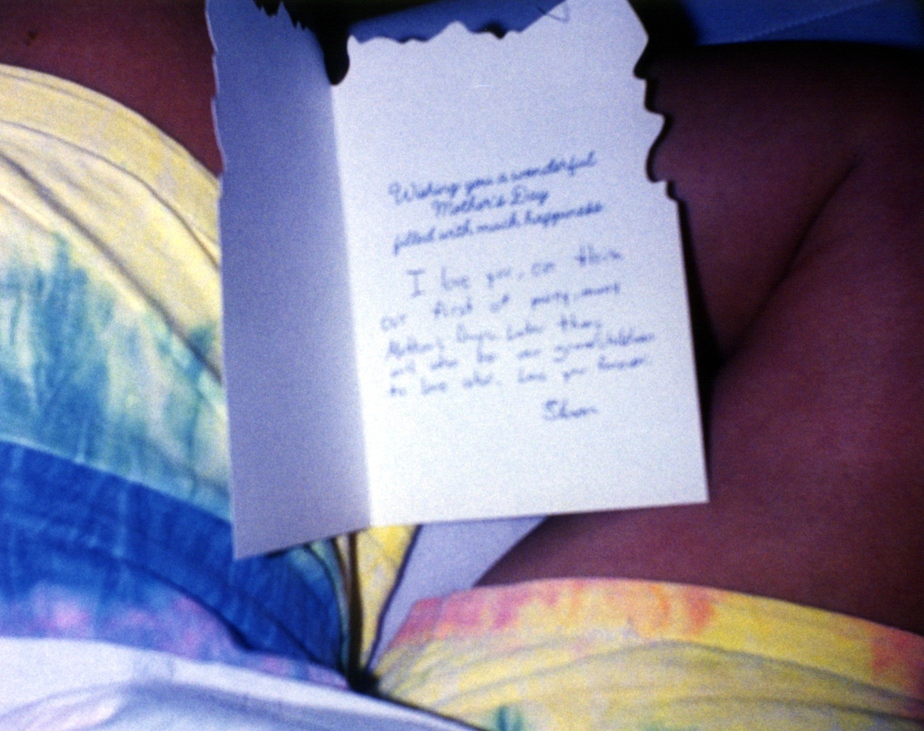 Wishing you a wonderful
Mother's Day
filled with much happiness
I love you, on this
our first of many, many
Mother's Days. Later there
will also be our grandchildren
to love also. Love you forever.